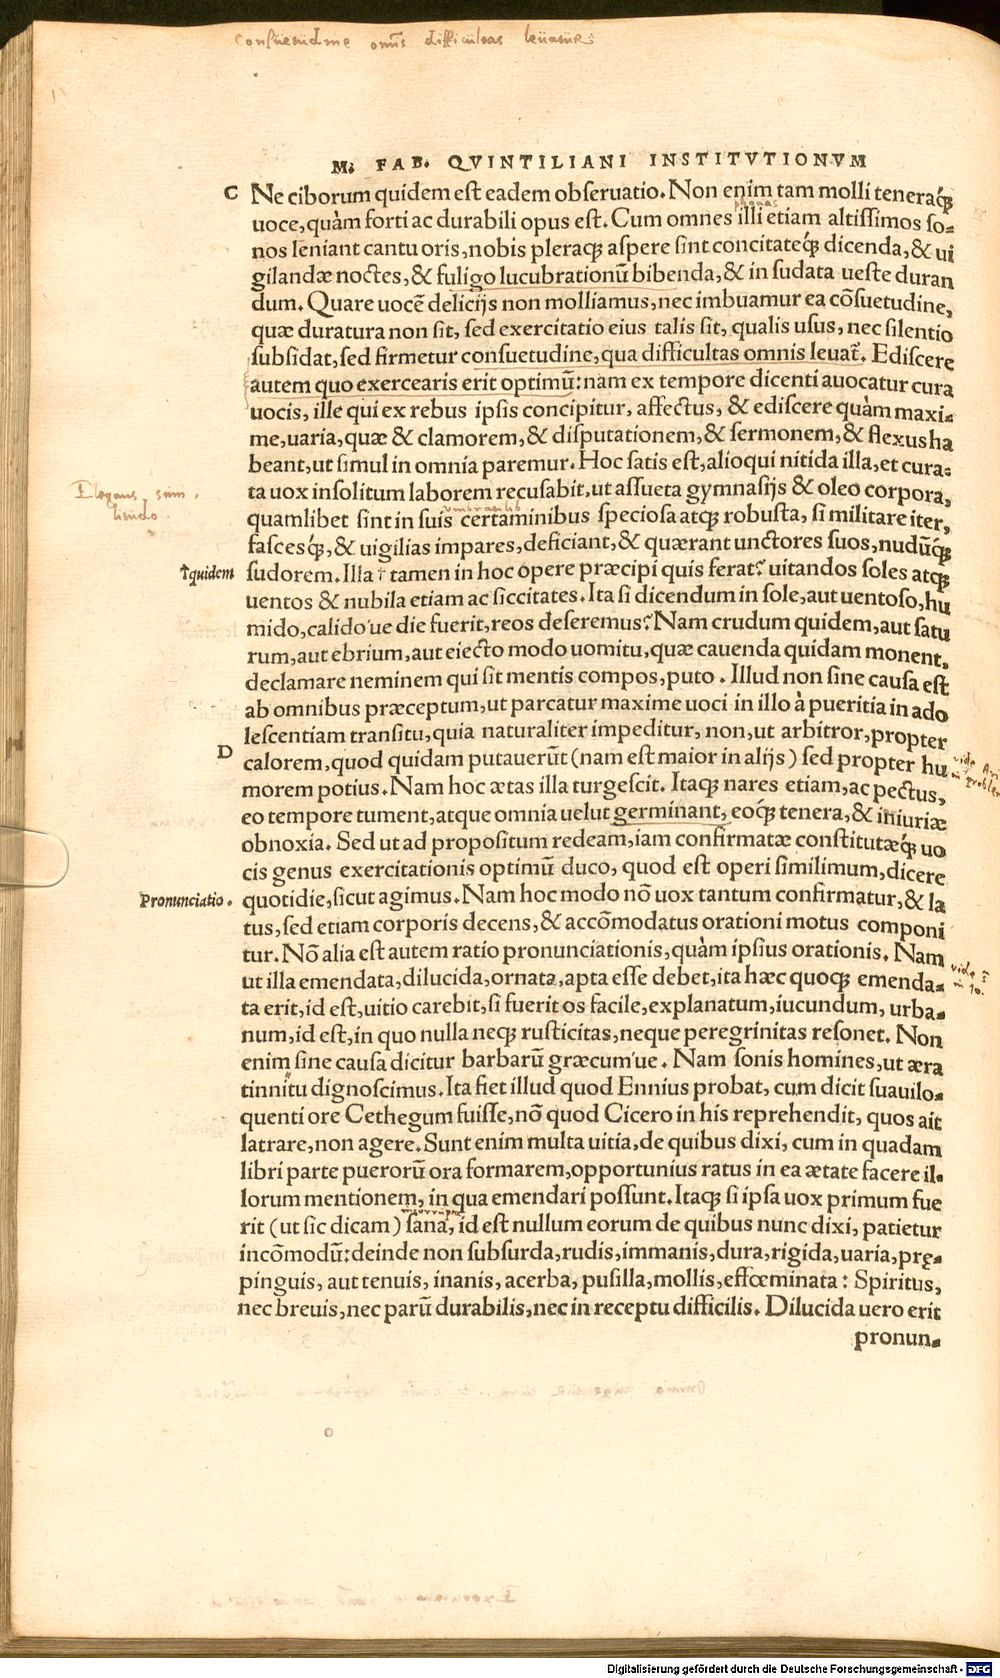 Consuetudine omnis difficultas leuatur
M. FAB. QVINTILIANI INSTITVTIONVM
C Ne ciborum quidem est eadem obseruatio. Non enim tam molli teneraq́;
phonas
uoce, quàm forti ac durabili opus est. Cum omnes illi etiam altissimos so-
nos leniant cantu oris, nobis pleraq; aspere sint concitateq́; dicenda, & ui
gilandæ noctes, & fuligo lucubrationũ bibenda, & in sudata ueste duran
dum. Quare uocẽ delicijs non molliamus, nec imbuamur ea cõsuetudine,
quæ duratura non sit, sed exercitatio eius talis sit, qualis usus, nec silentio
subsidat, sed firmetur consuetudine, qua difficultas omnis leuat̃. Ediscere
autem quo exercearis erit optimũ: nam ex tempore dicenti auocatur cura
uocis, ille qui ex rebus ipsis concipitur, affectus, & ediscere quàm maxi-
me, uaria, quæ & clamorem, & disputationem, & sermonem, & flexus ha
beant, ut simul in omnia paremur. Hoc satis est, alioqui nitida illa, et cura-
Elegans simi
litudo.
ta uox insolitum laborem recusabit, ut assueta gymnasijs & oleo corpora,
quamlibet sint in suis certaminibus speciosa atq; robusta, si militare iter,
fascesq́;, & uigilias impares, deficiant, & quærant unctores suos, nudũq́;
†quidem
sudorem. Illa † tamen in hoc opere præcipi quis ferat? uitandos soles atq;
uentos & nubila etiam ac siccitates. Ita si dicendum in sole, aut uentoso, hu
mido, calido ́ue die fuerit, reos deseremus? Nam crudum quidem, aut satu
rum, aut ebrium, aut eiecto modo uomitu, quæ cauenda quidam monent,
declamare neminem qui sit mentis compos, puto. Illud non sine causa est
ab omnibus præceptum, ut parcatur maxime uoci in illo à pueritia in ado
lescentiam transitu, quia naturaliter impeditur, non, ut arbitror, propter
D calorem, quod quidam putauerũt (nam est maior in alijs) sed propter hu
morem potius. Nam hoc ætas illa turgescit. Itaq; nares etiam, ac pectus,
eo tempore tument, atque omnia uelut germinant, eoq́; tenera, & iniuriæ
obnoxia. Sed ut ad propositum redeam, iam confirmatæ constitutæq́; uo
cis genus exercitationis optimũ duco, quod est operi simillimum, dicere
Pronunciatio.
quotidie, sicut agimus. Nam hoc modo nõ uox tantum confirmatur, & la
tus, sed etiam corporis decens, & accõmodatus orationi motus componi
tur. Nõ alia est autem ratio pronunciationis, quàm ipsius orationis. Nam
ut illa emendata, dilucida, ornata, apta esse debet, ita hæc quoq; emenda-
ta erit, id est, uitio carebit, si fuerit os facile, explanatum, iucundum, urba-
num, id est, in quo nulla neq; rusticitas, neque peregrinitas resonet. Non
enim sine causa dicitur barbarũ græcum ́ue. Nam sonis homines, ut æra
tinnitu dignoscimus. Ita fiet illud quod Ennius probat, cum dicit suauilo-
quenti ore Cethegum fuisse, nõ quod Cicero in his reprehendit, quos ait
latrare, non agere. Sunt enim multa uitia, de quibus dixi, cum in quadam
libri parte puerorũ ora formarem, opportunius ratus in ea ætate facere il-
lorum mentionem, in qua emendari possunt. Itaq; si ipsa uox primum fue
rit (ut sic dicam) sana, id est nullum eorum de quibus nunc dixi, patietur
incõmodũ: deinde non subsurda, rudis, immanis, dura, rigida, uaria, prę-
pinguis, aut tenuis, inanis, acerba, pusilla, mollis, effœminata: Spiritus,
nec breuis, nec parũ durabilis, nec in receptu difficilis. Dilucida uero erit
pronun-
Digitalisierung gefördert durch die Deutsche Forschungsgemeinschaft - DFG